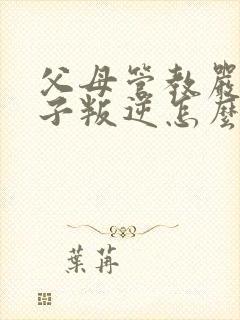 父母管教嚴
子叛逆怎麼
葉苒